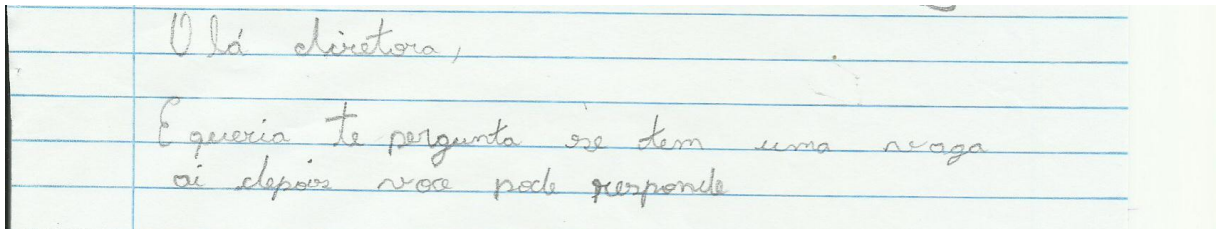 Olá diretora,
E queria te pergunta se tem uma vaga
ai depois voce pode responde